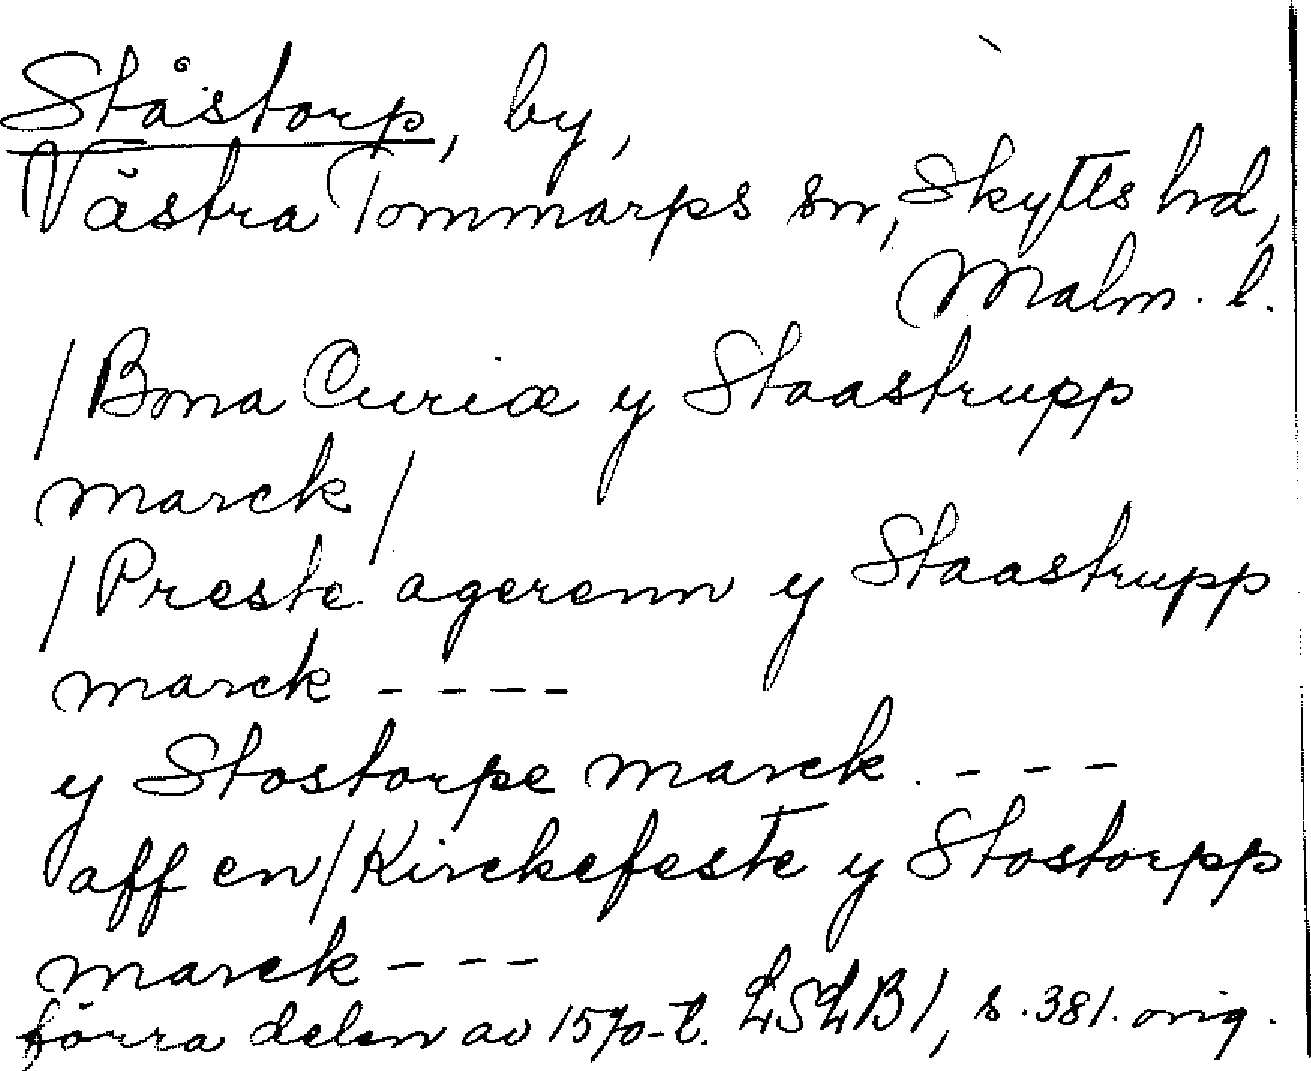 Ståstorp, by,
Västra Tommarps sn, Skytts hd,
Malm. l.
/Bona Curiæ y Staastrupp
marck/
/Preste agerenn y Staastrupp
marck ----
y Stostorpe marck. ---
aff en/Kirckefeste y Stostorpp
marck ---
förra delen av 1570-t. LSLB1, s. 381. orig.